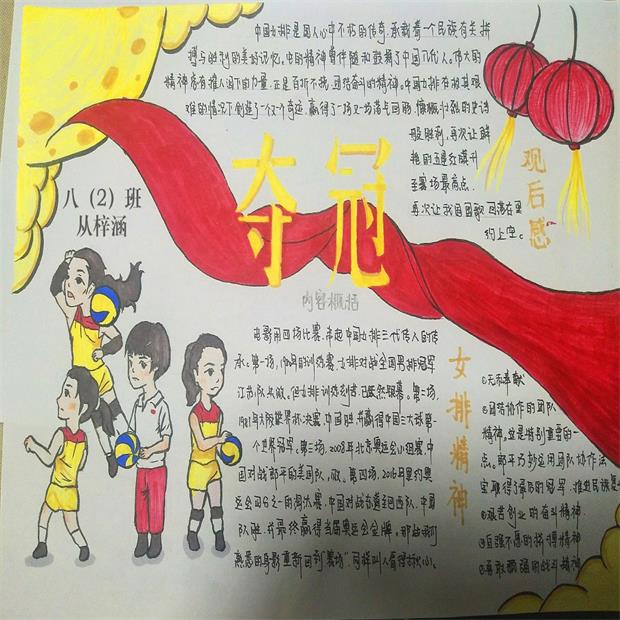 中国女排是国人心中不朽的传奇,承载着一个民族有关拼
搏与胜利的美好记忆。她的精神曾伴随和鼓舞了中国几代人。伟大的
精神总有撼人的力量,正是百折不挠,团结奋斗的精神。中国女排在极其艰
难的情况下创造了一个又一个奇迹,赢得了一场又一场荡气回肠,慷慨壮烈的史诗
般胜利,再次让鲜
艳的五星红旗升
至赛场最高点
再次让我国国歌回荡在里
约上空。
观后感
夺冠
八(2)班
从梓涵
内容概括
电影用四场比赛,串起中国女排三代传人的传
承。第一场,1979年的训练赛,女排对战全国男排冠军
江苏队,失败。但女排训练刻苦
1981年大阪世界杯决赛,中国胜,并赢得中国三大球第一
个世界冠军。第三场,2008年北京奥运会小组赛,中
国对战郎平的美国队,败。第四场,2016年里约奥
运会的淘汰赛,中国对战东道主巴西队,中国
队胜,并最终赢得当届奥运会金牌。那些我们
熟悉的身影重新回到“赛场”,同样叫人看得揪心。
女排精神
①无私奉献
②团结协作的团队
精神。这是特别重要的一
点。郎平巧妙运用团队协作法
宝取得了最后的冠军,
③艰苦创业的奋斗精神
④自强不息的拼搏精神
⑤勇敢顽强的战斗精神